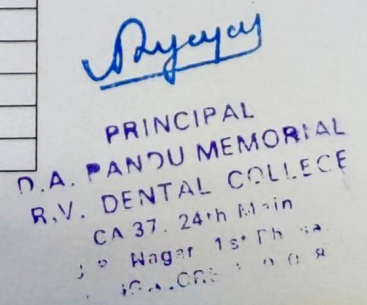 PRINCIPAL
D.A. PANDU MEMORIAL
R.V. DENTAL COLLEGE
CA 37. 24th Main
Nagar 1st